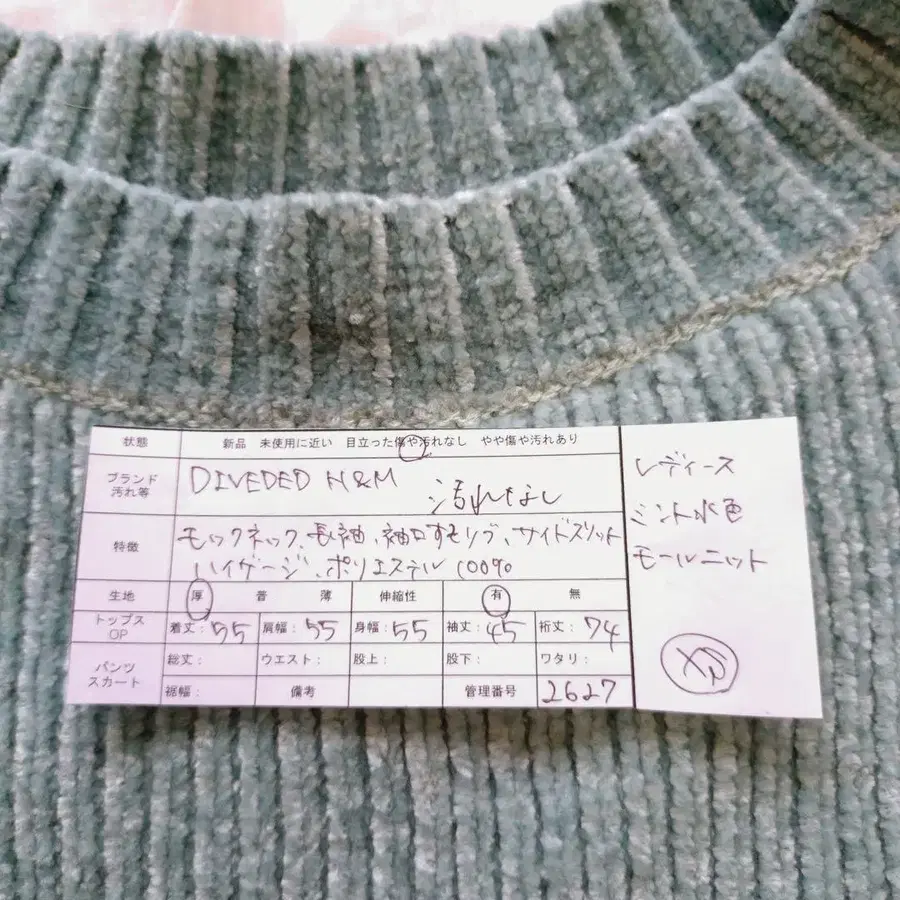 状態 新品 未使用に近い 目立った傷や汚れなし やや傷や汚れあり
ブランド
汚れ等
DIVEDED H&M 汚れなし
特徴
モックネック、長袖、袖口すそリブ、サイドスリット
ハイゲージ、ポリエステル100%
生地 厚 普 薄 伸縮性 有 無
トップス
OP
着丈:55 肩幅:55 身幅:55 袖丈:45 裄丈:74
パンツ
スカート
総丈: ウエスト: 股上: 股下: ワタリ:
裾幅: 備考 管理番号 2627
レディース
ミント水色
モールニット